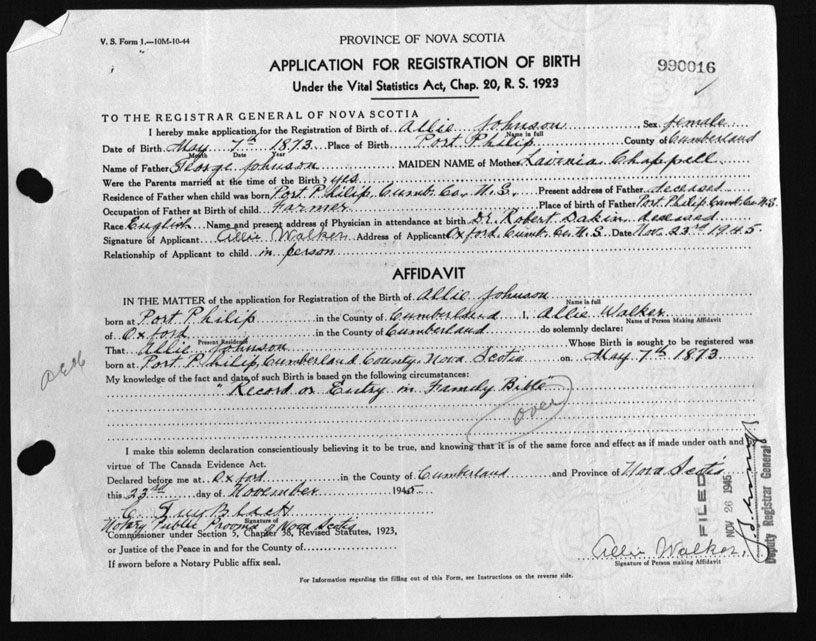 V. S. Form 1.—10M-10-44
PROVINCE OF NOVA SCOTIA
APPLICATION FOR REGISTRATION OF BIRTH
990016
Under the Vital Statistics Act, Chap. 20, R. S. 1923
TO THE REGISTRAR GENERAL OF NOVA SCOTIA
I hereby make application for the Registration of Birth of Allie Johnson, Sex female
Name in full
Date of Birth May 7th 1873 Place of Birth Port Philip County of Cumberland
Month Date Year
Name of Father George Johnson MAIDEN NAME of Mother Lavinia Chappell
Were the Parents married at the time of the Birth? yes
Residence of Father when child was born Port Philip, Cumb. Co. N.S. Present address of Father deceased
Occupation of Father at Birth of child Farmer Place of birth of Father Port Philip Cumb. Co. N.S.
Race English Name and present address of Physician in attendance at birth Dr. Robert Dakin deceased
Signature of Applicant Allie Walker Address of Applicant Oxford Cumb. Co. N.S. Date Nov. 23rd 1945
Relationship of Applicant to child in person
AFFIDAVIT
IN THE MATTER of the application for Registration of the Birth of Allie Johnson
Name in full
born at Port Philip in the County of Cumberland I, Allie Walker
Name of Person Making Affidavit
of Oxford in the County of Cumberland do solemnly declare:
Present Residence
That Allie Johnson Whose Birth is sought to be registered was
born at Port Philip, Cumberland County, Nova Scotia on May 7th 1873
My knowledge of the fact and date of such Birth is based on the following circumstances:
"Record or Entry in Family Bible"
over
I make this solemn declaration conscientiously believing it to be true, and knowing that it is of the same force and effect as if made under oath and by
virtue of The Canada Evidence Act.
Declared before me at Oxford in the County of Cumberland and Province of Nova Scotia
this 23rd day of November 1945
Black
Signature of
Notary Public Province of Nova Scotia
Commissioner under Section 5, Chapter 38, Revised Statutes, 1923,
or Justice of the Peace in and for the County of
If sworn before a Notary Public affix seal.
Allie Walker
Signature of Person making Affidavit
FILED
NOV 26 1945
Deputy Registrar General
For Information regarding the filling out of this Form, see Instructions on the reverse side.